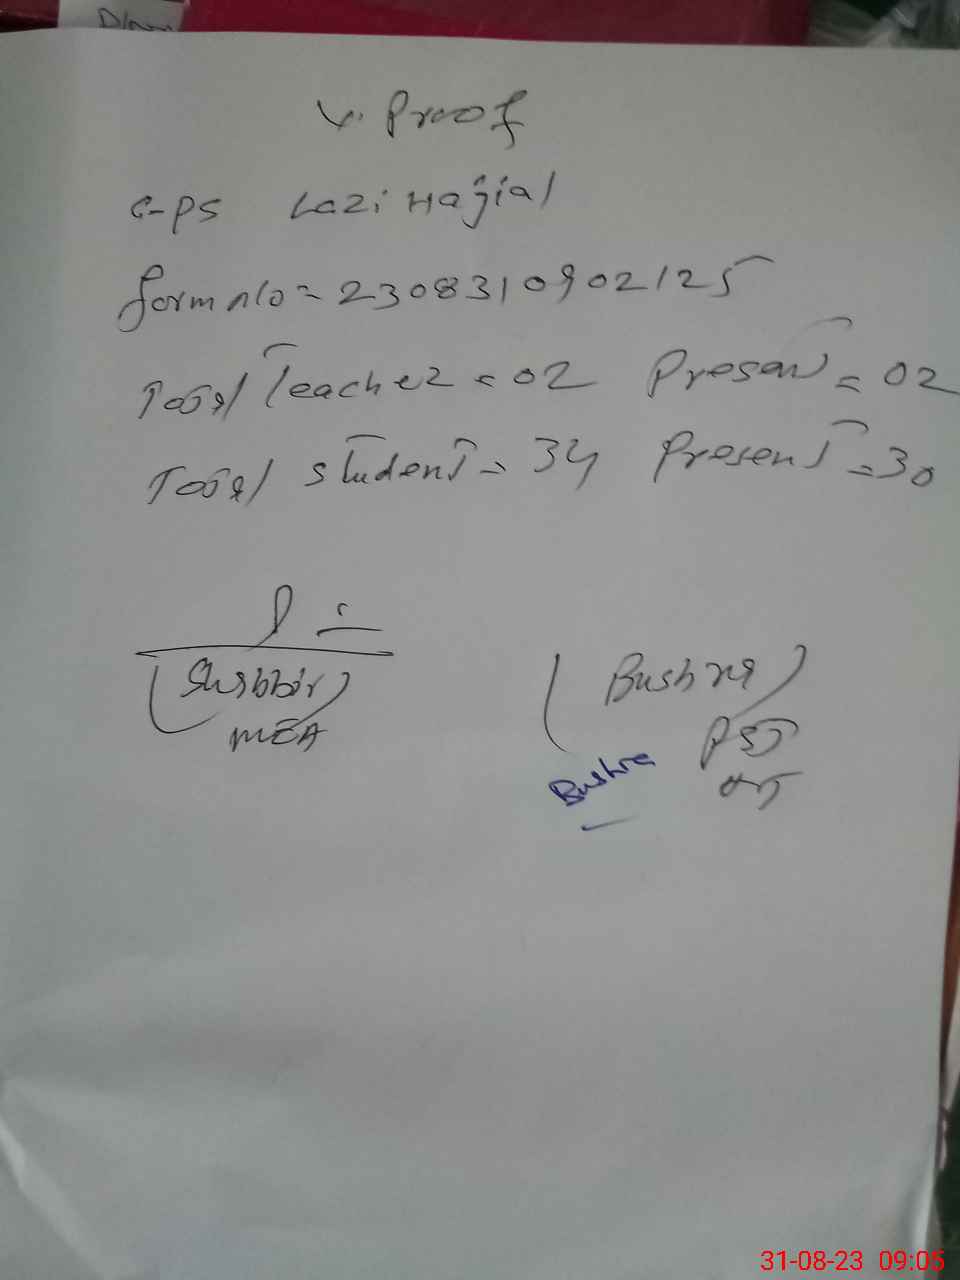 V. Proof
G-PS Lazi Hajial
form No = 2308310902125
Total Teacher = 02 Present = 02
Total student = 34 Present = 30
(Shabbir)
MEA
(Bushra)
PST
Bushra
31-08-23 09:05